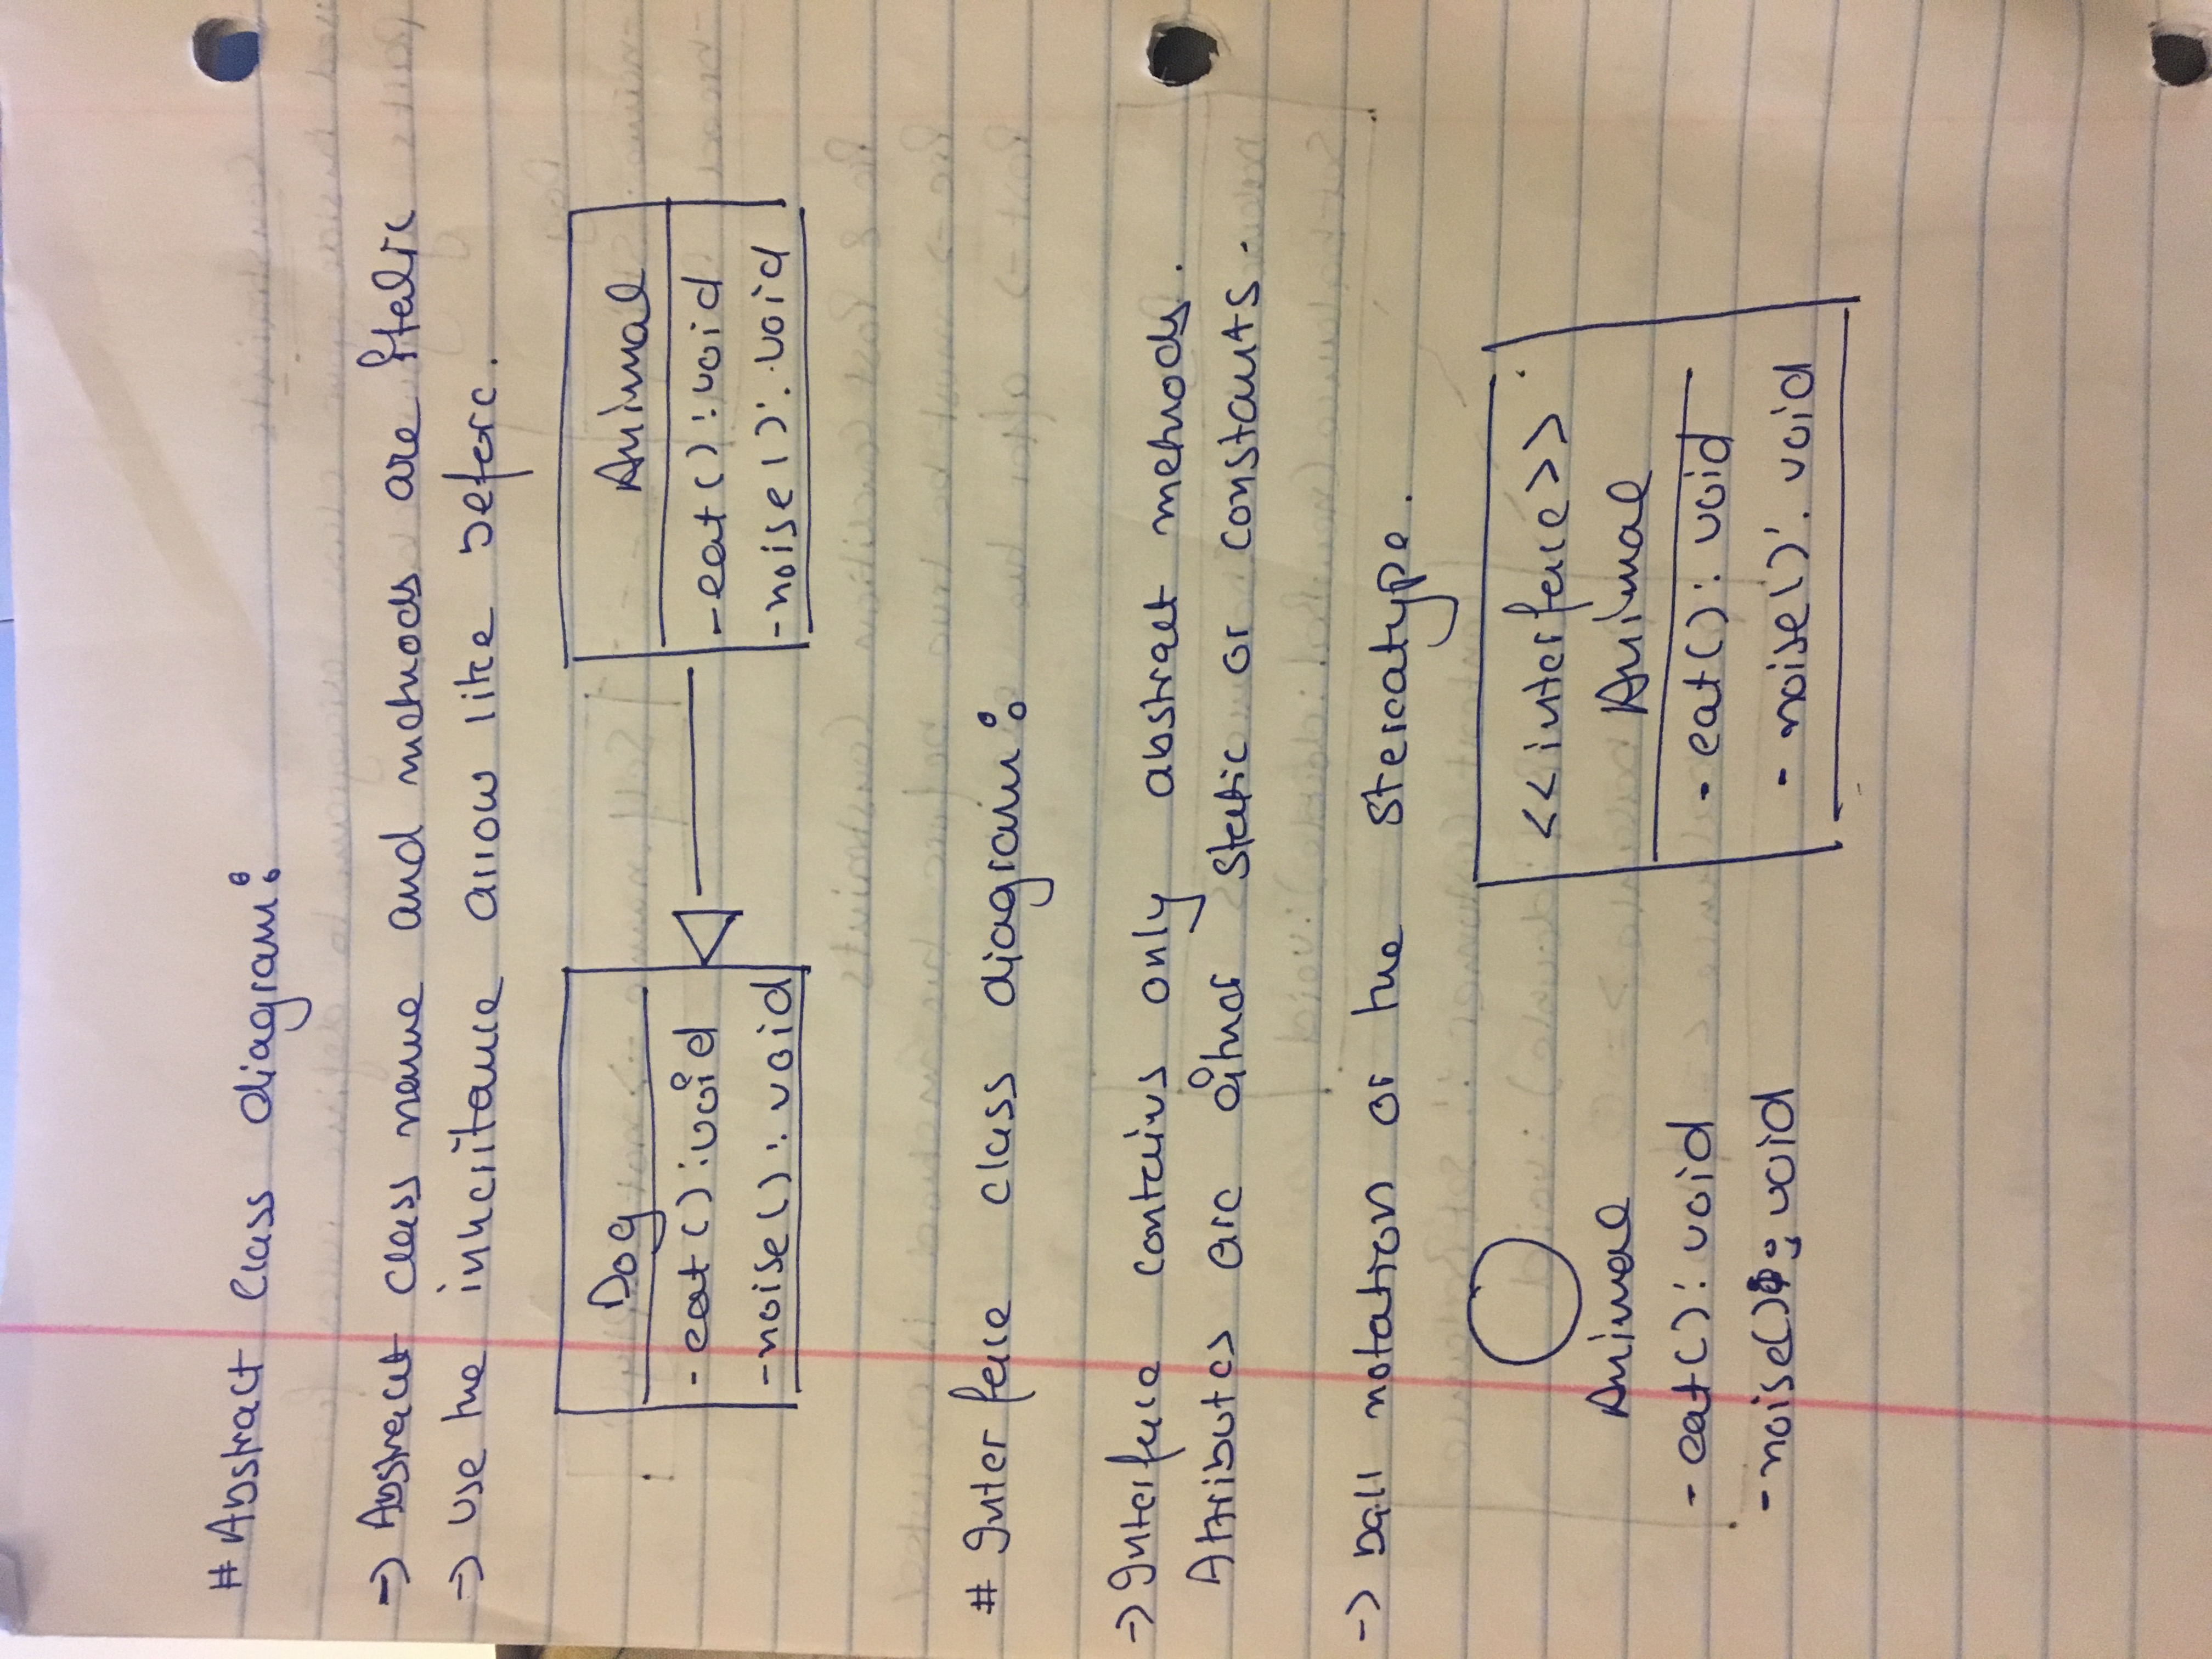 # Abstract class diagram:
-> Abstract class name and methods are italic
-> Use the inheritance arrow like before.
Dog
- eat() : void
- noise() : void
Animal
- eat() : void
- noise() : void
# Interface class diagram:
-> Interface contains only abstract methods.
Attributes are either static or constants.
-> ball notation or the stereotype.
Animal
- eat() : void
- noise() : void
<<interface>>
Animal
- eat() : void
- noise() : void